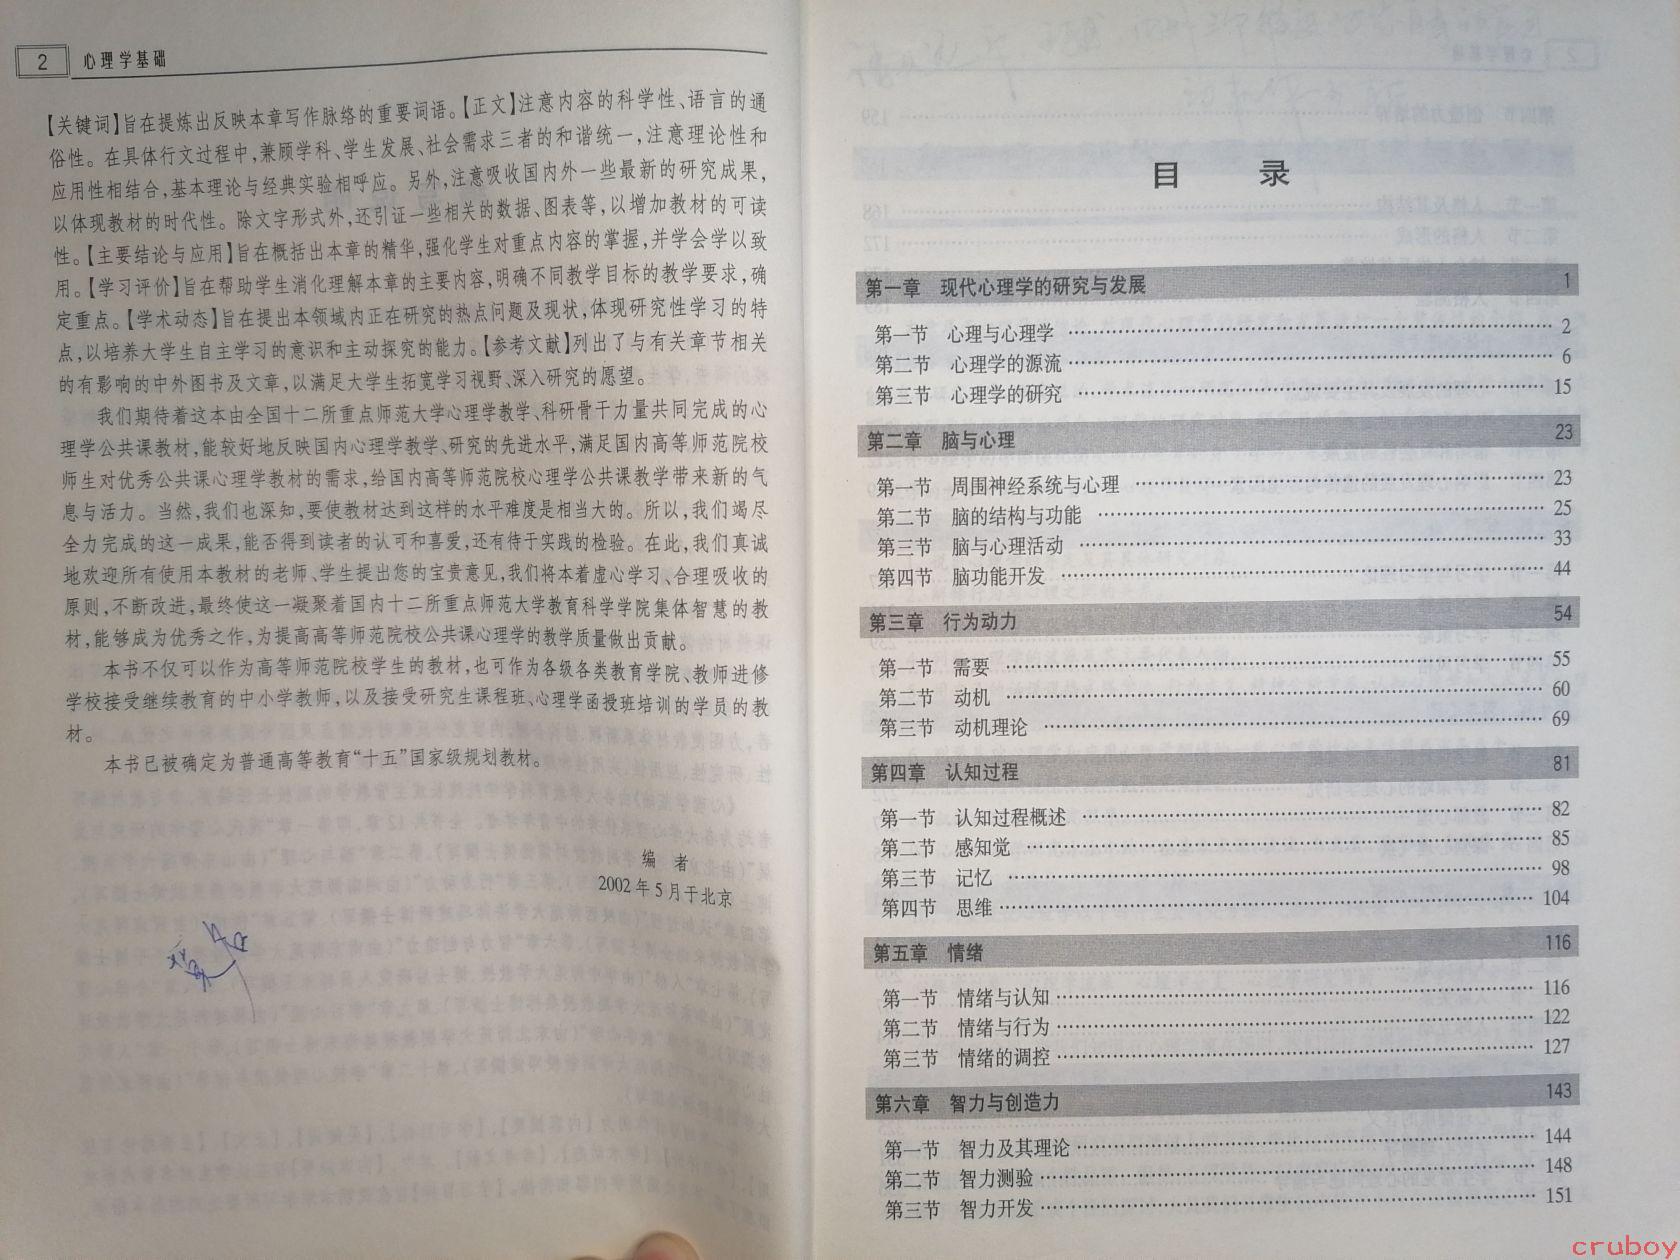 2 心理学基础
【关键词】旨在提炼出反映本章写作脉络的重要词语。【正文】注意内容的科学性、语言的通
俗性。在具体行文过程中,兼顾学科、学生发展、社会需求三者的和谐统一,注意理论性和
应用性相结合,基本理论与经典实验相呼应。另外,注意吸收国内外一些最新的研究成果,
以体现教材的时代性。除文字形式外,还引证一些相关的数据、图表等,以增加教材的可读
性。【主要结论与应用】旨在概括出本章的精华,强化学生对重点内容的掌握,并学会学以致
用。【学习评价】旨在帮助学生消化理解本章的主要内容,明确不同教学目标的教学要求,确
定重点。【学术动态】旨在提出本领域内正在研究的热点问题及现状,体现研究性学习的特
点,以培养大学生自主学习的意识和主动探究的能力。【参考文献】列出了与有关章节相关
的有影响的中外图书及文章,以满足大学生拓宽学习视野、深入研究的愿望。
我们期待着这本由全国十二所重点师范大学心理学教学、科研骨干力量共同完成的心
理学公共课教材,能较好地反映国内心理学教学、研究的先进水平,满足国内高等师范院校
师生对优秀公共课心理学教材的需求,给国内高等师范院校心理学公共课教学带来新的气
息与活力。当然,我们也深知,要使教材达到这样的水平难度是相当大的。所以,我们竭尽
全力完成的这一成果,能否得到读者的认可和喜爱,还有待于实践的检验。在此,我们真诚
地欢迎所有使用本教材的老师、学生提出您的宝贵意见,我们将本着虚心学习、合理吸收的
原则,不断改进,最终使这一凝聚着国内十二所重点师范大学教育科学学院集体智慧的教
材,能够成为优秀之作,为提高高等师范院校公共课心理学的教学质量做出贡献。
本书不仅可以作为高等师范院校学生的教材,也可作为各级各类教育学院、教师进修
学校接受继续教育的中小学教师,以及接受研究生课程班、心理学函授班培训的学员的教
材。
本书已被确定为普通高等教育“十五”国家级规划教材。
编 者
2002年5月于北京
目 录
第一章 现代心理学的研究与发展 1
第一节 心理与心理学 2
第二节 心理学的源流 6
第三节 心理学的研究 15
第二章 脑与心理 23
第一节 周围神经系统与心理 23
第二节 脑的结构与功能 25
第三节 脑与心理活动 33
第四节 脑功能开发 44
第三章 行为动力 54
第一节 需要 55
第二节 动机 60
第三节 动机理论 69
第四章 认知过程 81
第一节 认知过程概述 82
第二节 感知觉 85
第三节 记忆 98
第四节 思维 104
第五章 情绪 116
第一节 情绪与认知 116
第二节 情绪与行为 122
第三节 情绪的调控 127
第六章 智力与创造力 143
第一节 智力及其理论 144
第二节 智力测验 148
第三节 智力开发 151
cruboy